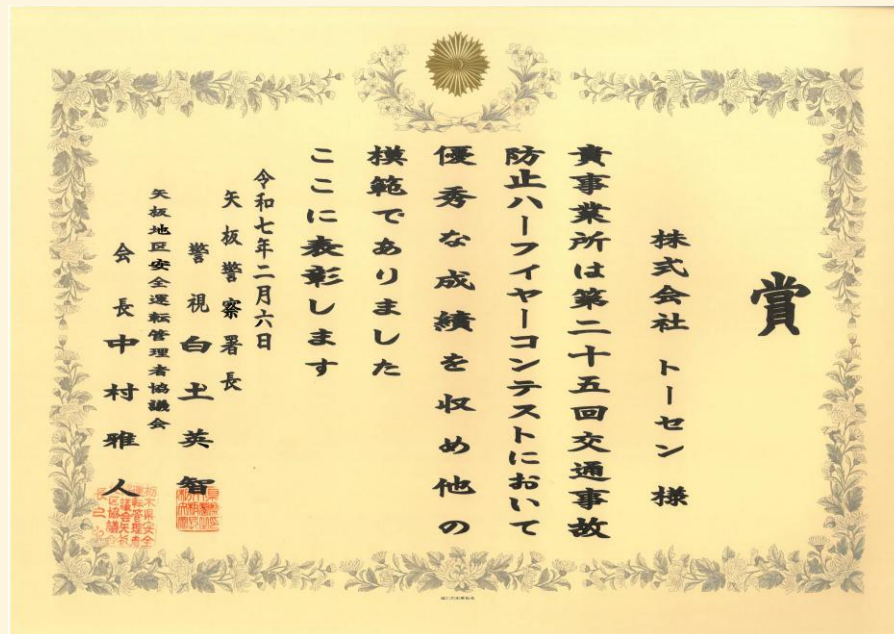 賞
株式会社 トーセン 様
貴事業所は第二十五回交通事故
防止ハーフイヤーコンテストにおいて
優秀な成績を収め他の
模範でありました
ここに表彰します
令和七年二月六日
矢板警察署長
警視 白土英智
矢板地区安全運転管理者協議会
会長 中村雅人